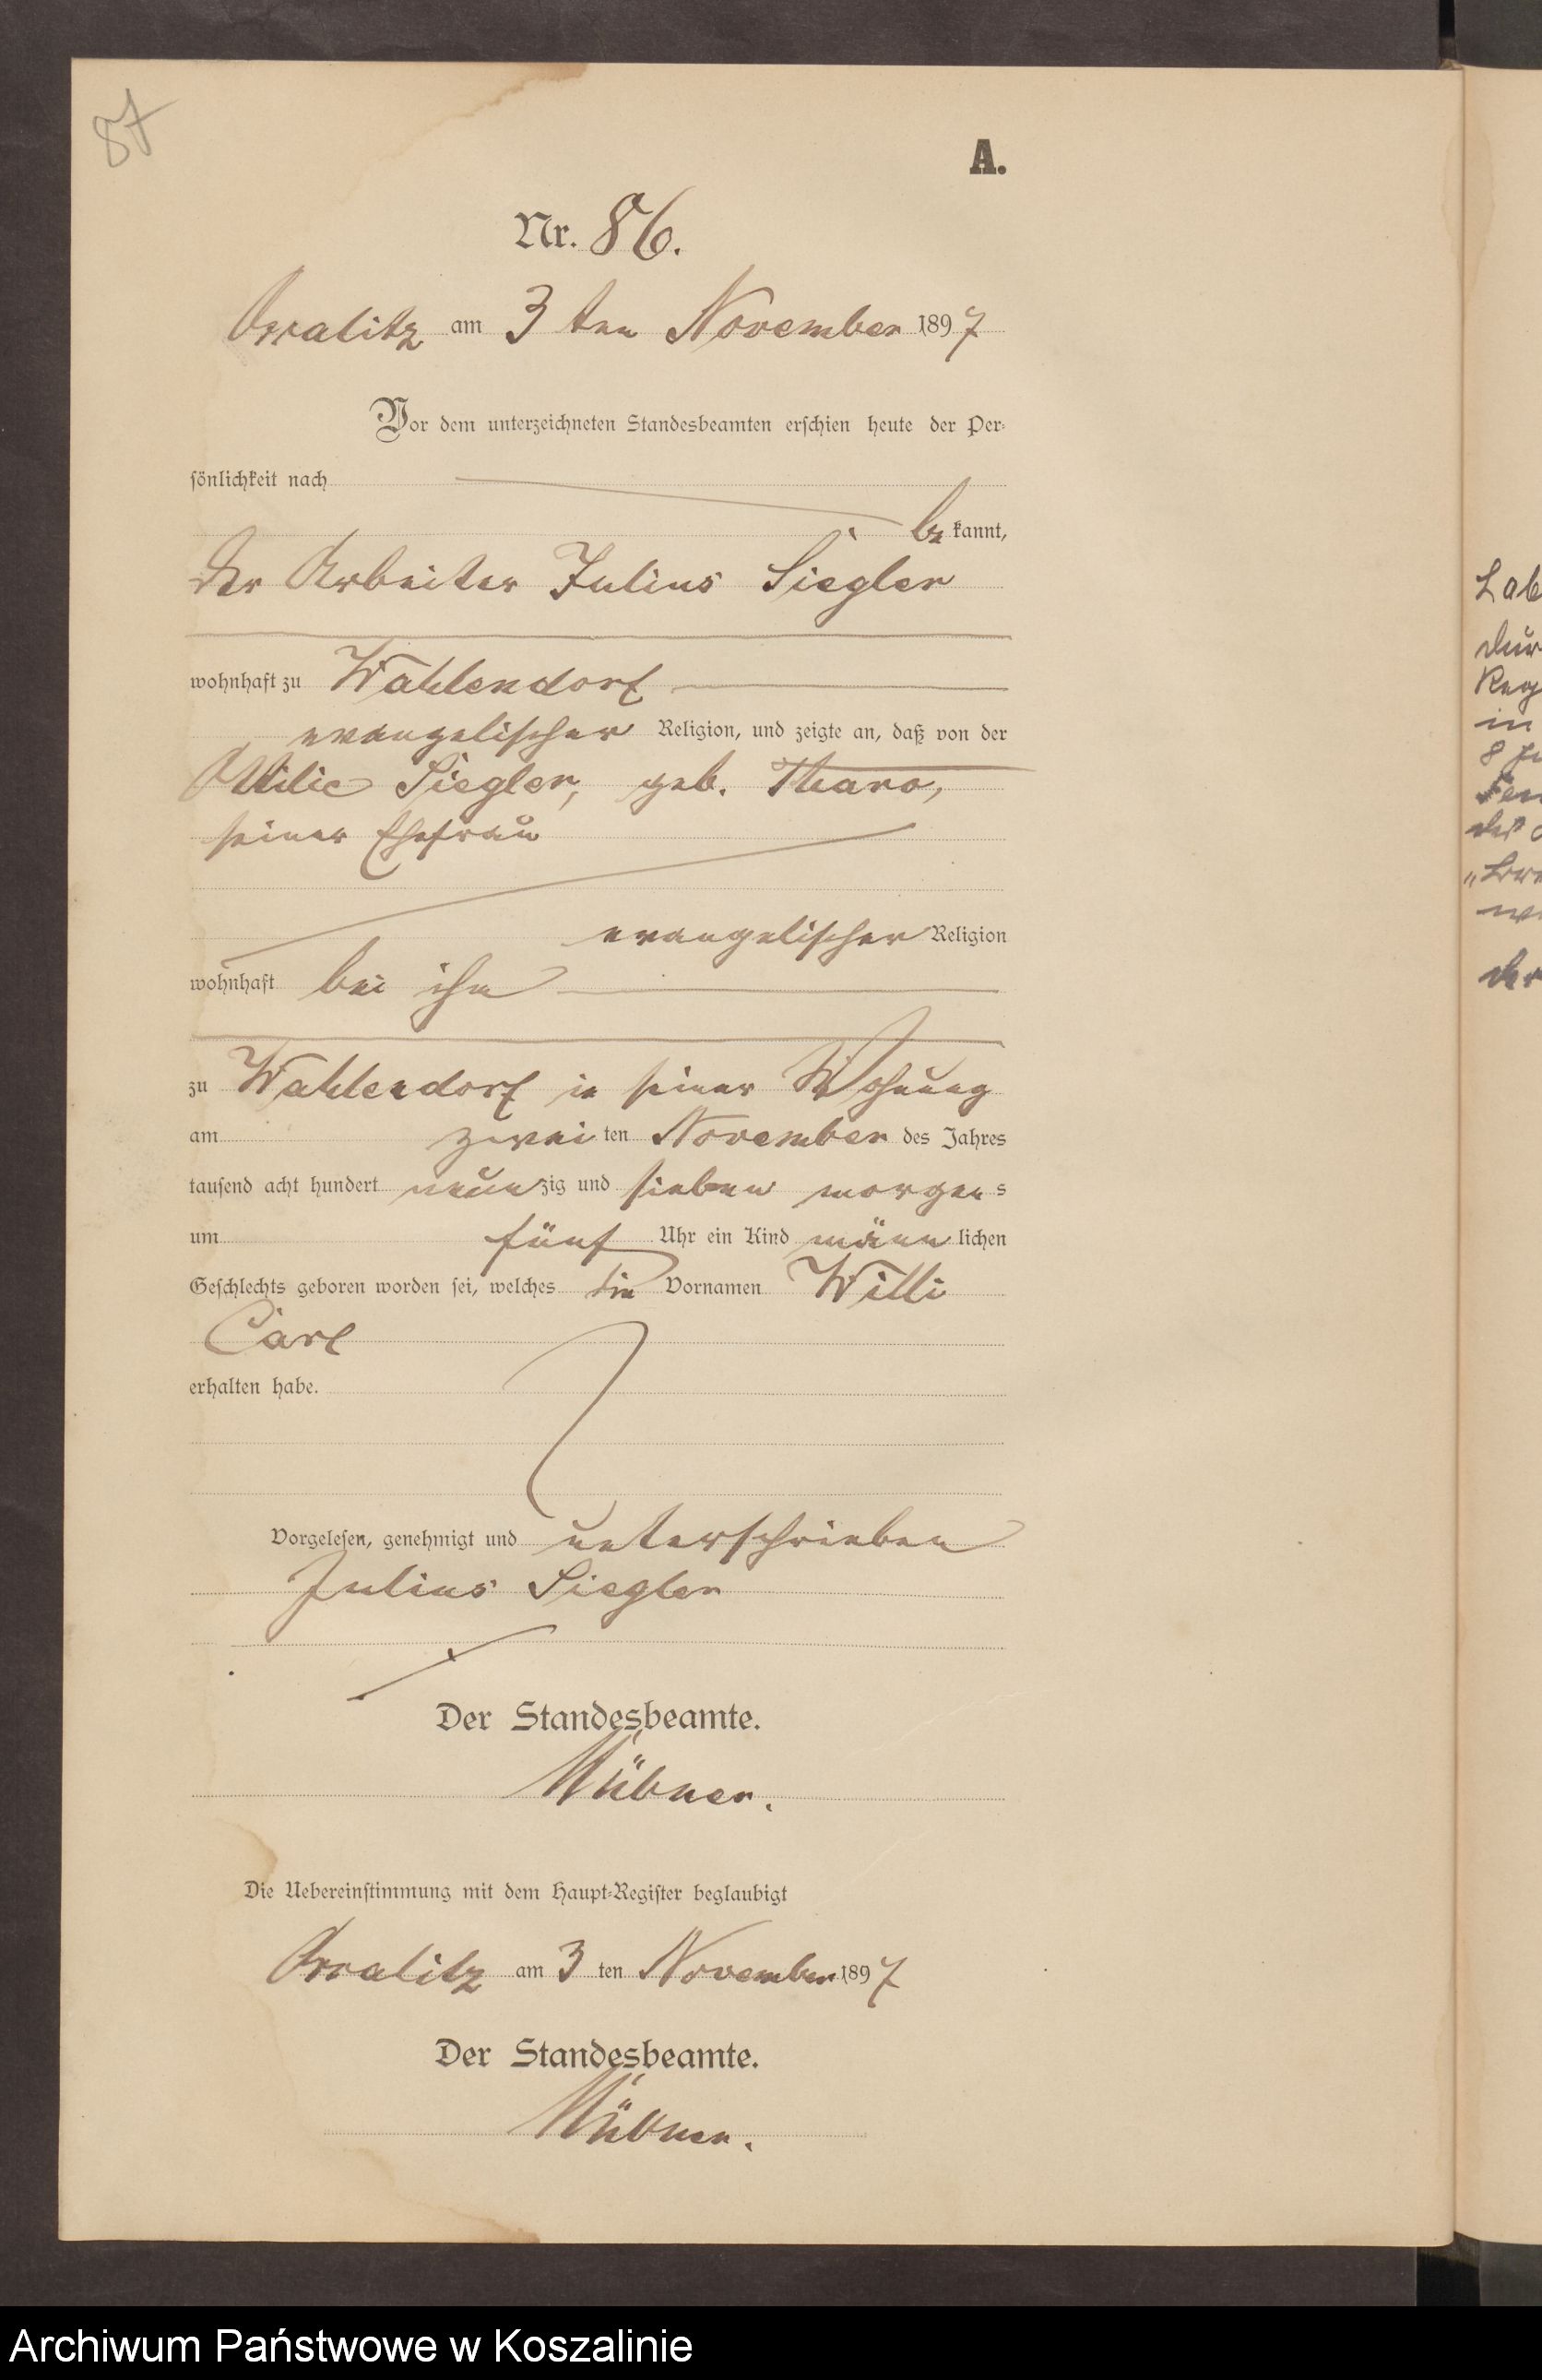 87
A.
Nr. 86.
am 3 ten November 1897
Vor dem unterzeichneten Standesbeamten erschien heute der Per-
sönlichkeit nach
be kannt,
der Arbeiter Julius Siegler
wohnhaft zu Wahlendorf
evangelischer Religion, und zeigte an, daß von der
Ottilie Siegler, geb. Tharo,
seiner Ehefrau
evangelischer Religion
wohnhaft bei ihm
zu Wahlendorf in seiner Wohnung
am zwei ten November des Jahres
tausend acht hundert neun zig und sieben morgen s
um fünf Uhr ein Kind männ lichen
Geschlechts geboren worden sei, welches die Vornamen Willi
Carl
erhalten habe.
Vorgelesen, genehmigt und unterschrieben
Julius Siegler
Der Standesbeamte.
Die Uebereinstimmung mit dem Haupt-Register beglaubigt
am 3 ten November 1897
Der Standesbeamte.
Lab
Reg
in
der
Archiwum Państwowe w Koszalinie